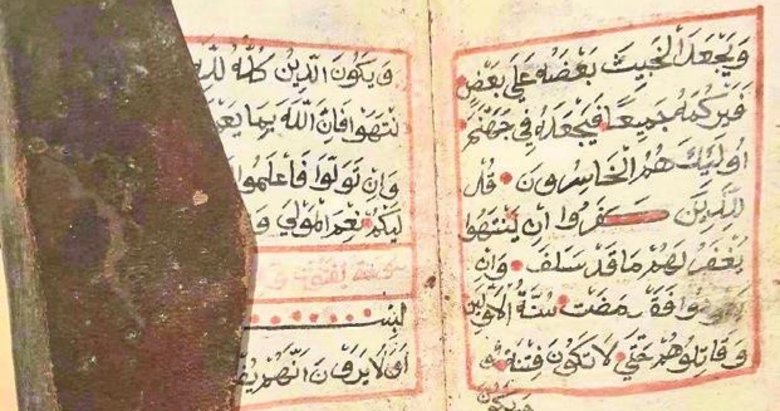 وَيَجْعَلَ الْخَبِيثَ بَعْضَهُ عَلَي بَعْضٍ
فَيَرْكُمَهُ جَمِيعًا فَيَجْعَلَهُ فِي جَهَنَّمَ
اُولَيِكَ هُمُ الْخَاسِرُونَ قُلْ
لِلَّذِينَ كَفَرُوا اِنْ يَنْتَهُوا
يُغْفَرْ لَهُمْ مَا قَدْ سَلَفَ وَاِنْ
فَقَدْ مَضَتْ سُنَّةُ الْاَوَّلِينَ
وَقَاتِلُوهُمْ حَتَّي لَا تَكُونَ فِتْنَةٌ و
ويكون
وَيَكُونَ الدِّينُ كُلُّهُ لِلَّهِ
نْتَهَوْا فَاِنَّ اللَّهَ بِمَا يَعْ
وَاِنْ تَوَلَّوْا فَاعْلَمُوا
لَيكُمْ نِعْمَ الْمَوْلَي وَ
سورة
اَوَلَا يَرَوْنَ اَنَّهُمْ يُفْ